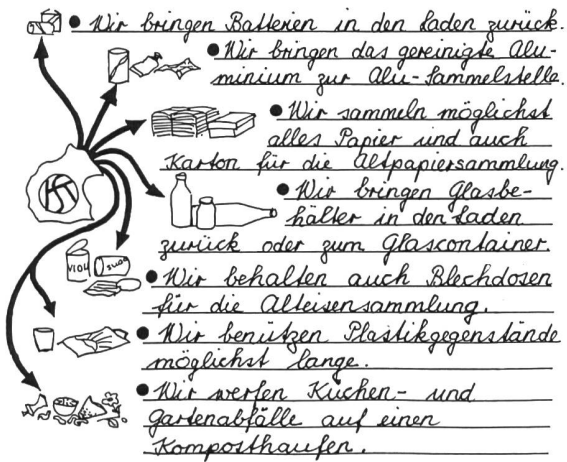 • Wir bringen Batterien in den Laden zurück.
• Wir bringen das gereinigte Alu-
minium zur Alu-Sammelstelle.
• Wir sammeln möglichst
alles Papier und auch
Karton für die Altpapiersammlung.
• Wir bringen Glasbe-
hälter in den Laden
zurück oder zum Glascontainer.
• Wir behalten auch Blechdosen
für die Alteisensammlung.
• Wir benützen Plastikgegenstände
möglichst lange.
• Wir werfen Küchen- und
Gartenabfälle auf einen
Komposthaufen.